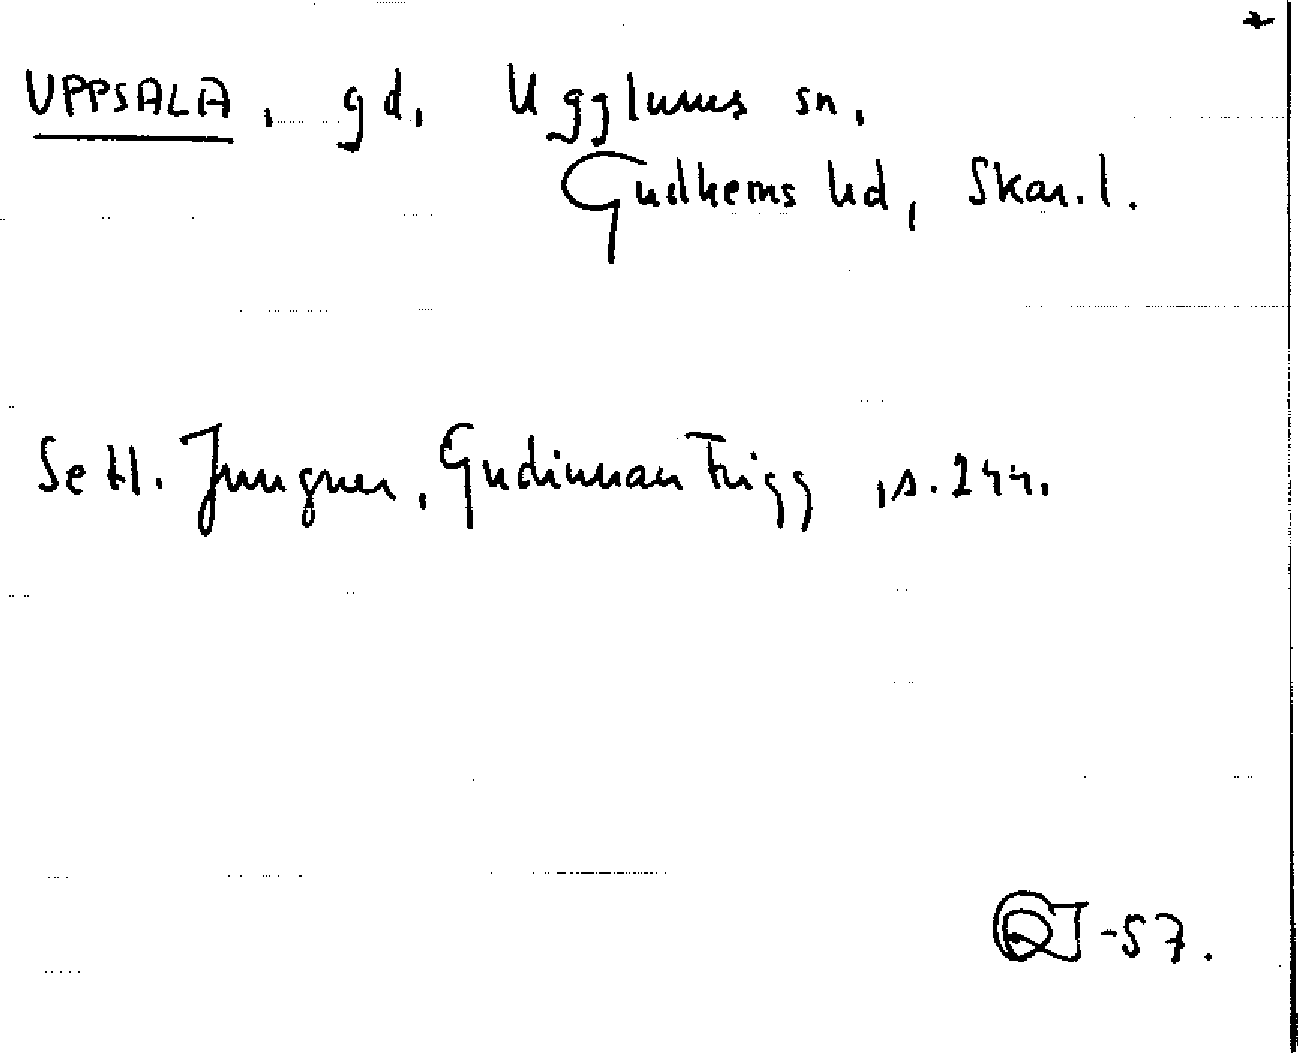 UPPSALA, gd, Ugglums sn,
Gudhems hd, Skar. l.
Se H. Jungner, Gudinnan Frigg, s. 244.
-57.